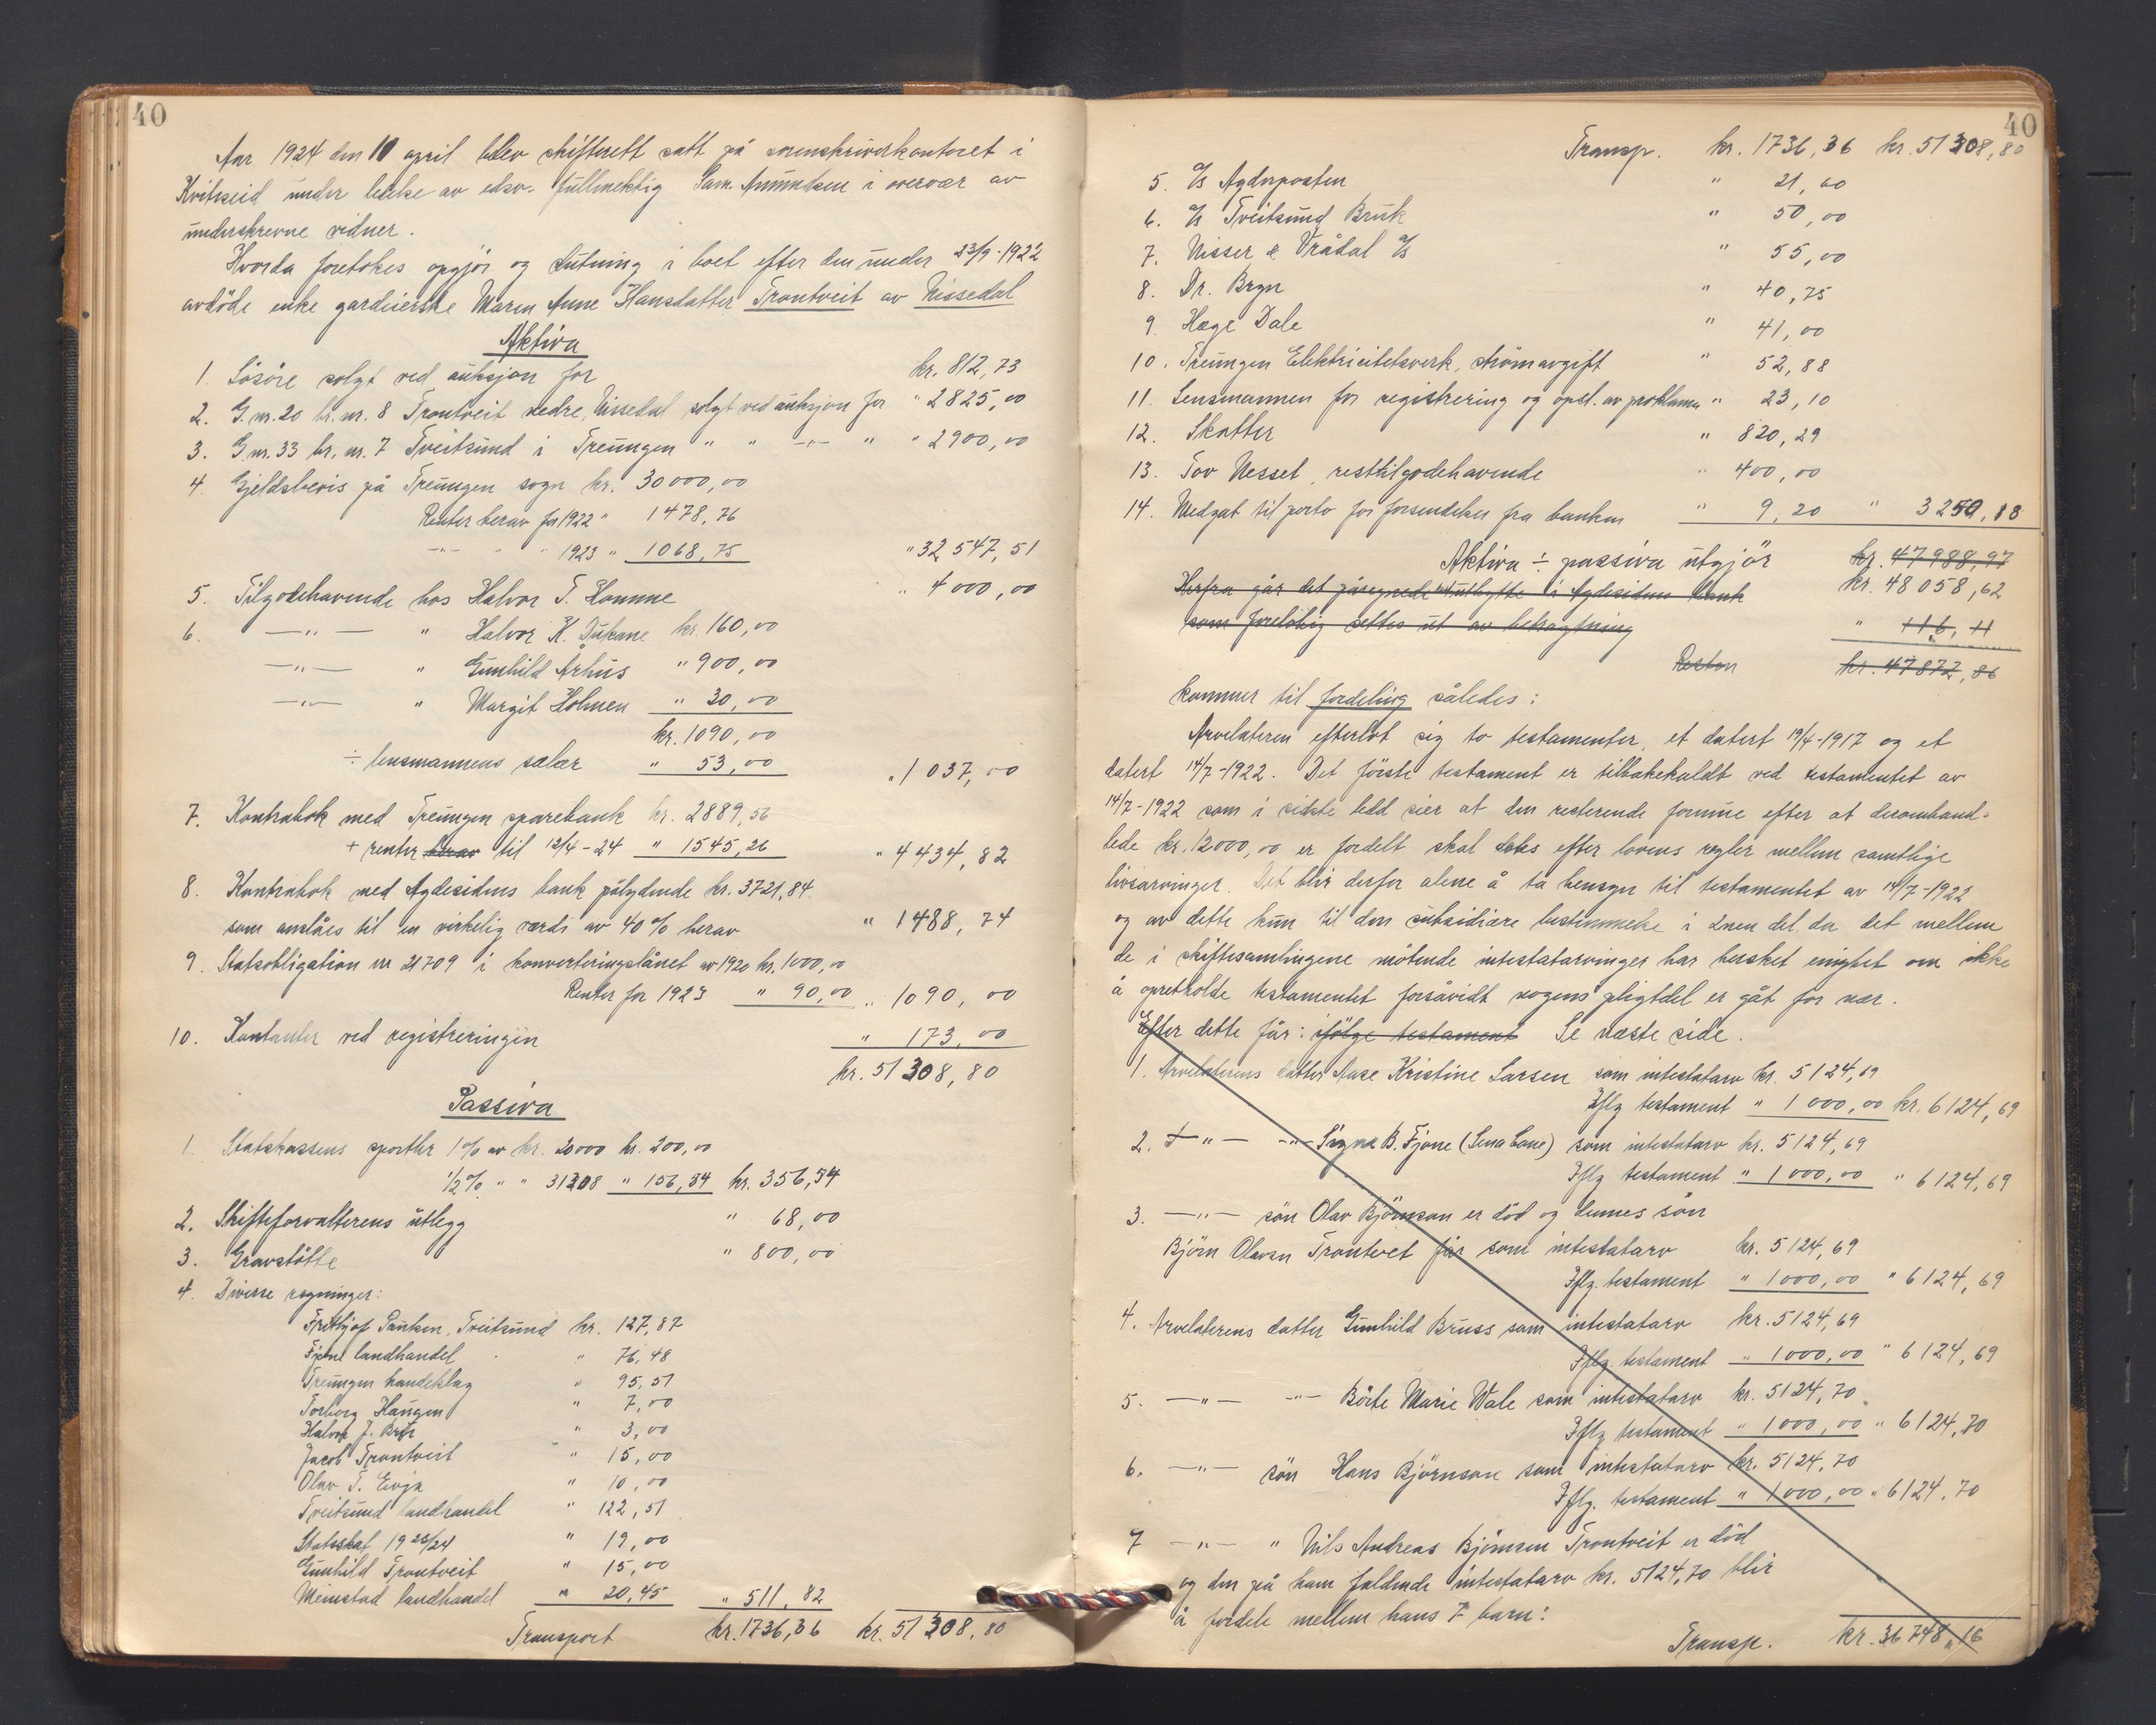 40
Aar 1924 den 10 april blev skifterett satt på sorenskriverkontoret i
Kviteseid under ledelse av edsv. fullmektig Sam. Amundsen i overvær av
underskrevne vidner.
Hvorda foretokes opgjör og slutning i boet efter den under 23/9-1922
avdöde enke gardeierske Maren Anne Hansdatter Trontveit av Nissedal
Aktiva
1. Lösöre solgt ved auksjon for kr. 812,73
2. G.nr. 20 br.nr. 8 Trontveit nedre, Nissedal solgt ved auksjon for " 2825,00
3. G.nr. 33 br. nr. 7 Tveitsund i Treungen " " -"- " " 2900,00
4. Gjeldsbevis på Treungen sogn kr. 30000,00
Renter herav for 1922 " 1478,76
-"- " " 1923 " 1068,75 " 32547,51
5. Tilgodehavende hos Halvor T. Homme " 4000,00
6. -"- " Halvor K. Dukane kr. 160,00
-"- " Gunhild Århus " 900,00
-"- " Margit Holmen " 30,00
kr. 1090,00
÷ lensmannens salær " 53,00 " 1037,00
7. Kontrabok med Treungen sparebank kr. 2889,56
+ renter herav til 12/4-24 " 1545,26 " 4434,82
8. Kontrabok med Agdesidens bank pålydende kr. 3721,84
som anslåes til en virkelig verdi av 40% herav " 1488,74
9. Statsobligation nr 21709 i konverteringslånet av 1920 kr. 1000,00
Renter for 1923 " 90,00 " 1090,00
10. Kontanter ved registreringen " 173,00
kr. 51308,80
Passiva
1. Statskassens sportler 1% av kr. 20000 kr. 200,00
1/2% " " 31308 " 156,54 kr. 356,54
2. Skifteforvalterens utlegg " 68,00
3. Gravstötte " 800,00
4. Diverse regninger:
Frithjof Paulsen, Tveitsund kr. 127,87
Fjone landhandel " 76,48
Treungen handelslag " 95,51
Torborg Haugen " 7,00
Halvor J. " 3,00
Jacob Trontveit " 15,00
Olav T. Evja " 10,00
Tveitsund landhandel " 122,51
Statsskat 1923/24 " 19,00
Gunhild Trontveit " 15,00
Meinstad landhandel " 20,45 " 511,82
Transport kr. 1736,36 kr. 51308,80
40
Transp. kr. 1736,36 kr. 51308,80
5. A/s Agderposten " 21,60
6. A/s Tveitsund Bruk " 50,00
7. Nisser & Vrådal A/s " 55,00
8. Dr. Bryn " 40,75
9. Hæge Dale " 41,00
10. Treungen Elektricitetsverk, strömavgift " 52,88
11. Lensmannen for registrering og opsl. av proklama " 23,10
12. Skatter " 820,29
13. Tov Nesset, resttilgodehavende " 400,00
14. Medgåt til porto for forsendelser fra banken " 9,20 " 3250,18
Aktiva ÷ passiva utgjör kr. 47988,97
kr. 48058,62
Herfra går det påregnede utbytte i Agdesidens bank
som foreløbig settes ut av betragtning " 116,11
Resten kr. 47872,86
kommer til fordeling således:
Arvelateren efterlot sig to testamenter, et datert 19/4-1917 og et
datert 14/7-1922. Det förste testament er tilbakekaldt ved testamentet av
14/7-1922 som i sidste ledd sier at den resterende formue efter at deromhand-
lede kr. 12000,00 er fordelt skal deles efter lovens regler mellem samtlige
livsarvinger. Det blir derfor alene å ta hensyn til testamentet av 14/7-1922
og av dette kun til den subsidiære bestemmelse i 2nen del, da det mellem
de i skiftesamlingene mötende intestatarvinger har hersket enighet om ikke
å opretholde testamentet forsåvidt nogens pligtdel er gåt for nær.
Efter dette får: ifölge testament Se næste side.
1. Arvelaterens datter Aase Kristine Larsen som intestatarv kr. 5124,69
Iflg testament " 1000,00 kr. 6124,69
2. -"- -"- Signe B. Fjone (Lena Lane) som intestatarv kr. 5124,69
Iflg testament " 1000,00 " 6124,69
3. -"- sön Olav Björnson er död og dennes sön
Björn Olavsen Trontveit får som intestatarv kr. 5124,69
Iflg. testament " 1000,00 " 6124,69
4. Arvelaterens datter Gunhild Bruss som intestatarv kr. 5124,69
Iflg. testament " 1000,00 " 6124,69
5. -"- -"- Börte Marie Wale som intestatarv kr. 5124,70
Iflg testament " 1000,00 " 6124,70
6. -"- sön Hans Björnson som intestatarv kr. 5124,70
Iflg. testament " 1000,00 " 6124,70
7 -"- " Nils Andreas Björnsen Trontveit er död
og den på ham faldende intestatarv kr. 5124,70 blir
å fordele mellem hans 7 barn:
Transp. kr. 36748,16